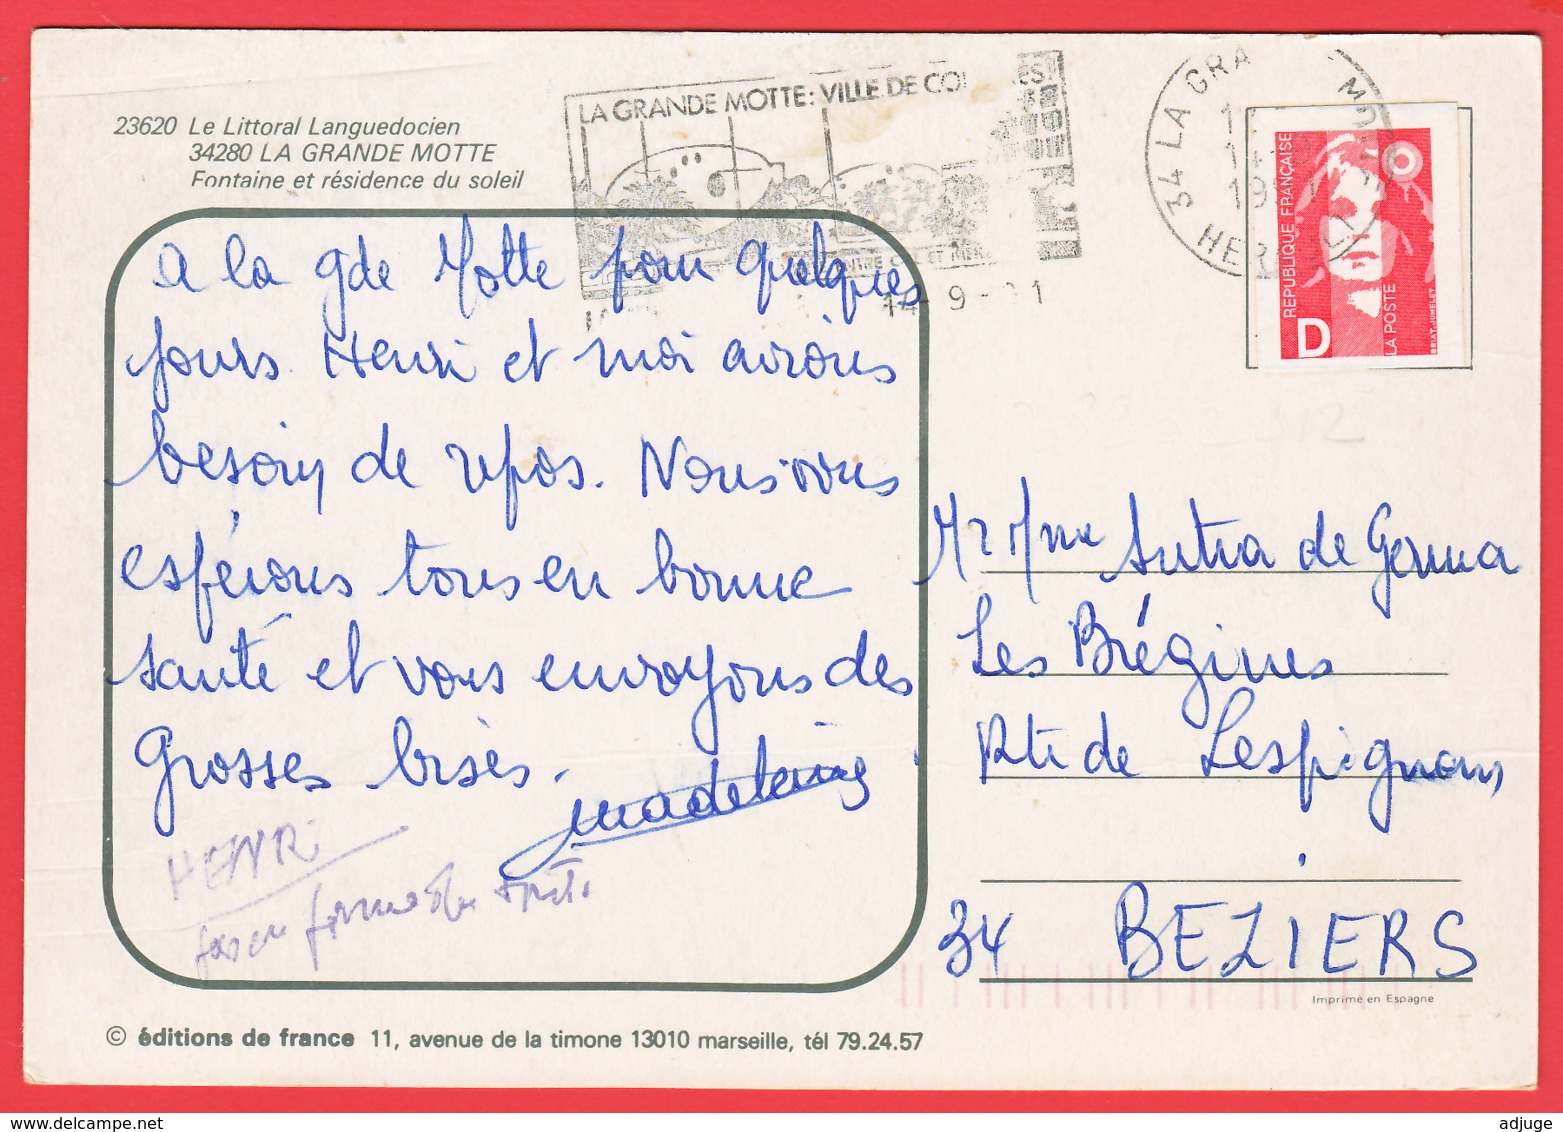 23620 Le Littoral Languedocien
34280 LA GRANDE MOTTE
Fontaine et résidence du soleil
LA GRANDE MOTTE: VILLE DE
14-9-
34 LA GRA
REPUBLIQUE FRANÇAISE
LA POSTE
D
BRIAT-JUMELET
A la gde Motte pour quelques
jours. Henri et moi avions
besoin de repos. Nous vous
espérons tous en bonne
santé et vous envoyons des
Grosses bises.
Madeleine
HENRI
Mr Mme Sutra de Germa
Les Brégines
Rte de Lespignan
34 BEZIERS
Imprimé en Espagne
© éditions de france 11, avenue de la timone 13010 marseille, tél 79.24.57
adjuge